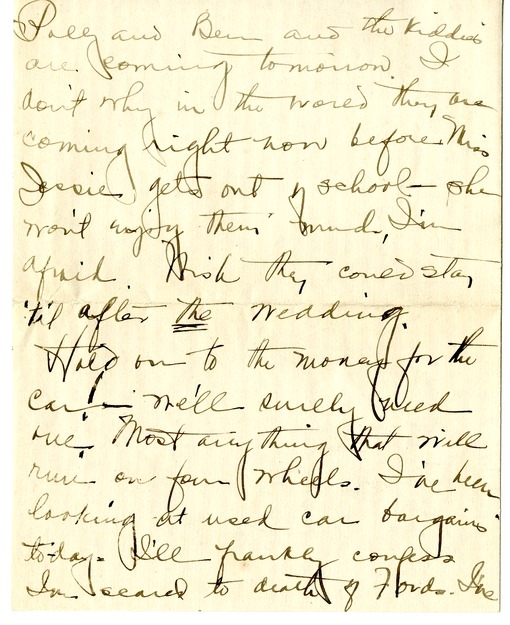 Polly and Ben and the kiddies
are coming tomorrow. I
don't why in the world they are
coming right now before Miss
Jessie gets out of school - she
won't enjoy them much, I'm
afraid. Wish they could stay
'til after the wedding.
Hold on to the money for the
car! - We'll surely need
one. Most anything that will
run on four wheels. I've been
looking at used car bargains
today. I'll frankly confess
I'm scared to death of Fords. I've